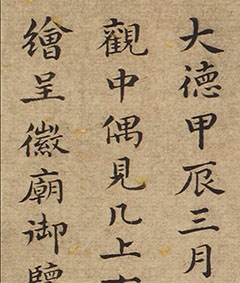 大德甲辰三月
觀中偶見几上
繪呈徽廟御